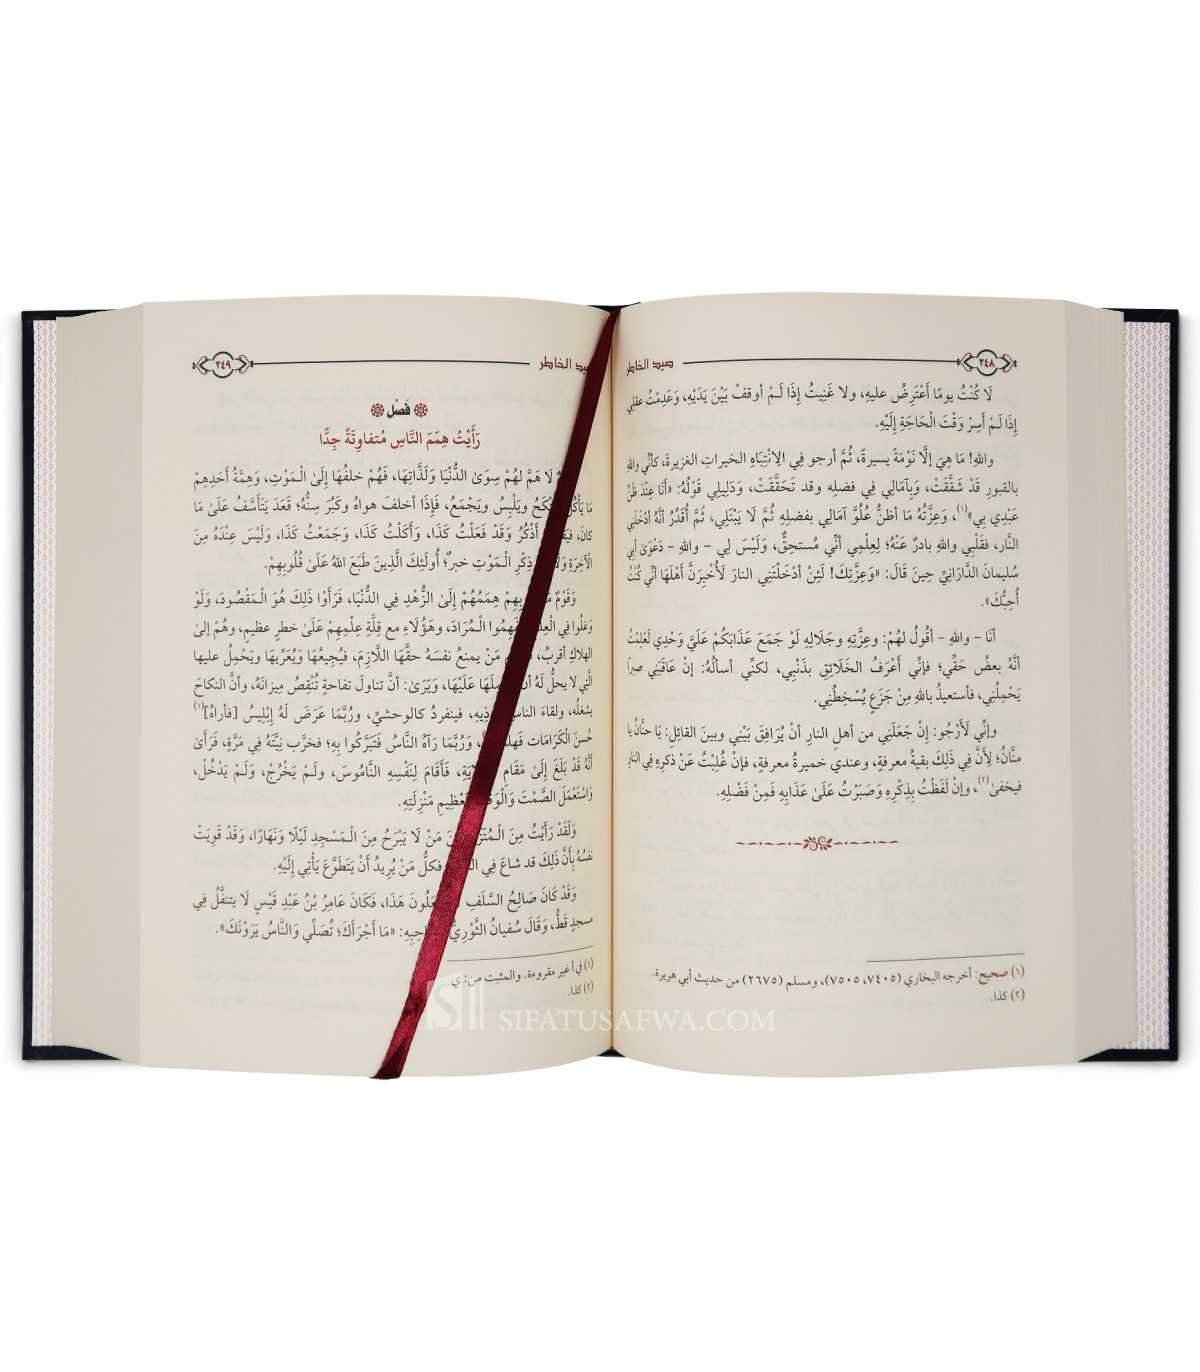 صيد الخاطر
٢٤٨
لَا كُنْتُ يومًا أَعْتَرِضُ عليهِ، ولا غَنِيتُ إِذَا لَـمْ أوقفْ بَيْنَ يَدَيْهِ، وَعَدِمْتُ عقلِي
إِذَا لَـمْ أَسِرْ وَقْتَ الْحَاجَةِ إِلَيْهِ.
واللهِ! مَا هِيَ إلَّا نَوْمَةً يسيرةً، ثُمَّ أرجو فِي الِانْتِبَاهِ الخيراتِ الغزيرةَ، كأنِّي واللهِ
بالقبورِ قَدْ شَقَّقَتْ، وَبِآمَالِي فِي فضلِه وقد تَحَقَّقَتْ، وَدَلِيلِي قَوْلُهُ: «أَنَا عِنْدَ ظَنِّ
عَبْدِي بِي»(١)، وَعِزَّتُهُ مَا أظنُّ عُلُوَّ آمَالِي بفضلِهِ ثُمَّ لَا يَبْتَلِي، ثُمَّ أُقَدِّرُ أنَّهُ أدْخَلَنِي
النَّار، فقَلْبِي واللهِ بادرٌ عَنْهُ؛ لِعِلْمِي أنِّي مُستحِقٌّ، وَلَيْسَ لِي – واللهِ – دَعْوَىٰ أبِي
سُليمانَ الدَّارَانِيِّ حِينَ قَالَ: «وَعِزَّتِكَ! لَئِنْ أدْخَلْتَنِي النارَ لَأُخْبِرَنَّ أَهْلَهَا أَنِّي كُنْتُ
أُحِبُّكَ».
أنَا – واللهِ – أقُولُ لهُمْ: وعِزَّتِهِ وجَلَالِهِ لَوْ جَمَعَ عَذَابَكُمْ عَلَيَّ وَحْدِي لَعَلِمْتُ
أنَّهُ بعضُ حَقِّي؛ فإنِّي أَعْرَفُ الخَلَائِقِ بذَنْبِي، لكنِّي أسألُهُ: إنْ عَاقَبَنِي صبرًا
يَحْمِلُنِي، فأستعيذُ باللهِ مِنْ جَزَعٍ يُسْخِطُنِي.
وإنِّي لَأَرْجُو: إنْ جَعَلَنِي من أهلِ النارِ أنْ يُرَافِقَ بَيْنِي وبينَ القائِلِ: يَا حنَّانُ يا
منَّانُ؛ لِأَنَّ فِي ذَلِكَ بقيةُ معرفةٍ، وعندي خميرةُ معرفةٍ، فإنْ غُلِبْتُ عَنْ ذكرِهِ فِي النارِ
فيخفىٰ(٢)، وإنْ لَفَظْتُ بِذِكْرِهِ وَصَبَرْتُ عَلَىٰ عَذَابِهِ فَمِنْ فَضْلِهِ.
(١) صحيح: أخرجه البخاري (٧٤٠٥، ٧٥٠٥)، ومسلم (٢٦٧٥) من حديث أبي هريرة.
(٢) كذا.
صيد الخاطر
٢٤٩
فَصْل
رَأَيْتُ هِمَمَ النَّاسِ مُتفاوِتَةً جِدًّا
لَا هَمَّ لهُمْ سِوَىٰ الدُّنْيَا وَلَذَّاتِهَا، فَهُمْ خلفُهَا إلَىٰ الْـمَوْتِ، وَهِمَّةُ أَحَدِهِمْ
مَا يَأْكُلُ ويَلْبِسُ ويَجْمَعُ، فَإِذَا أخلفَ هواهُ وكَبُرَ سِنُّهُ؛ قَعَدَ يَتَأَسَّفُ عَلَىٰ مَا
كانَ، أَذْكُرُ وَقَدْ فَعَلْتُ كَذَا، وَأَكَلْتُ كَذَا، وَجَمَعْتُ كَذَا، وَلَيْسَ عِنْدَهُ مِنَ
الْآخِرَةِ ذِكْرِ الْـمَوْتِ خبرٌ؛ أُولَئِكَ الَّذِينَ طَبَعَ اللهُ عَلَىٰ قُلُوبِهِمْ.
وَقَوْمٌ بِهِمْ هِمَمُهُمْ إِلَىٰ الزُّهْدِ فِي الدُّنْيَا، فَرَأَوْا ذَلِكَ هُوَ الْـمَقْصُودَ، وَلَوْ
وَغَلُوا فِي الْعِلْمِ لَفَهِمُوا الْـمُرَادَ، وهَؤُلَاءِ مع قِلَّةِ عِلْمِهِمْ عَلَىٰ خطرٍ عظيمٍ، وهُمْ إلىٰ
الهلاكِ أقربُ، مَنْ يمنعُ نفسَهُ حقَّهَا اللَّازِمَ، فيُجِيعُهَا وَيُعَرِّيهَا ويَحْمِلُ عليها
الَّتِي لا يحلُّ لَهُ أنْ يحمِلَهَا عَلَيْهَا، وَيَرَىٰ: أنَّ تناولَ تفاحةٍ تُنْقِصُ مِيزَانَهُ، وأنَّ النكاحَ
يشغلُه، ولقاءَ الناسِ يُؤْذِيهِ، فينفردُ كالوحشيِّ، ورُبَّمَا عَرَضَ لَهُ إبْلِيسُ [فأراهُ](١)
حُسنَ الْكَرَامَاتِ وَرُبَّمَا رَآهُ النَّاسُ فَتَبَرَّكُوا بِهِ؛ فخرَّب نِيَّتَهُ فِي مَرَّةٍ، فَرَأَىٰ
أنَّهُ قَدْ بَلَغَ إِلَىٰ مَقَامِ فَأَقَامَ لِنَفْسِهِ النَّامُوسَ، ولَـمْ يَخْرُجْ، وَلَـمْ يَدْخُلْ،
وَاسْتَعْمَلَ الصَّمْتَ وَالْوَقَارَ لِتَعْظِيمِ مَنْزِلَتِهِ.
وَلَقَدْ رَأَيْتُ مِنَ الْـمُتَزَهِّدِينَ مَنْ لَا يَبْرَحُ مِنَ الْـمَسْجِدِ لَيْلًا وَنَهَارًا، وَقَدْ قَوِيَتْ
نفسُهُ بِأَنَّ ذَلِكَ قد شاعَ فِي فكلُّ مَنْ يُرِيدُ أَنْ يَتَطَوَّعَ يَأْتِي إِلَيْهِ.
وَقَدْ كَانَ صَالِحُ السَّلَفِ يَفْعَلُونَ هَذَا، فَكَانَ عَامِرُ بْنُ عَبْدِ قَيْسٍ لَا يتنفَّلُ فِي
مسجدٍ قَطُّ، وَقَالَ سُفيانُ الثَّوْرِيُّ لِصَاحِبِهِ: «مَا أَجْرَأَكَ؛ تُصَلِّي وَالنَّاسُ يَرَوْنَكَ».
(١) في أ غير مقروءة، والمثبت من: ي
(٢) كذا.
SIFATUSAFWA.COM